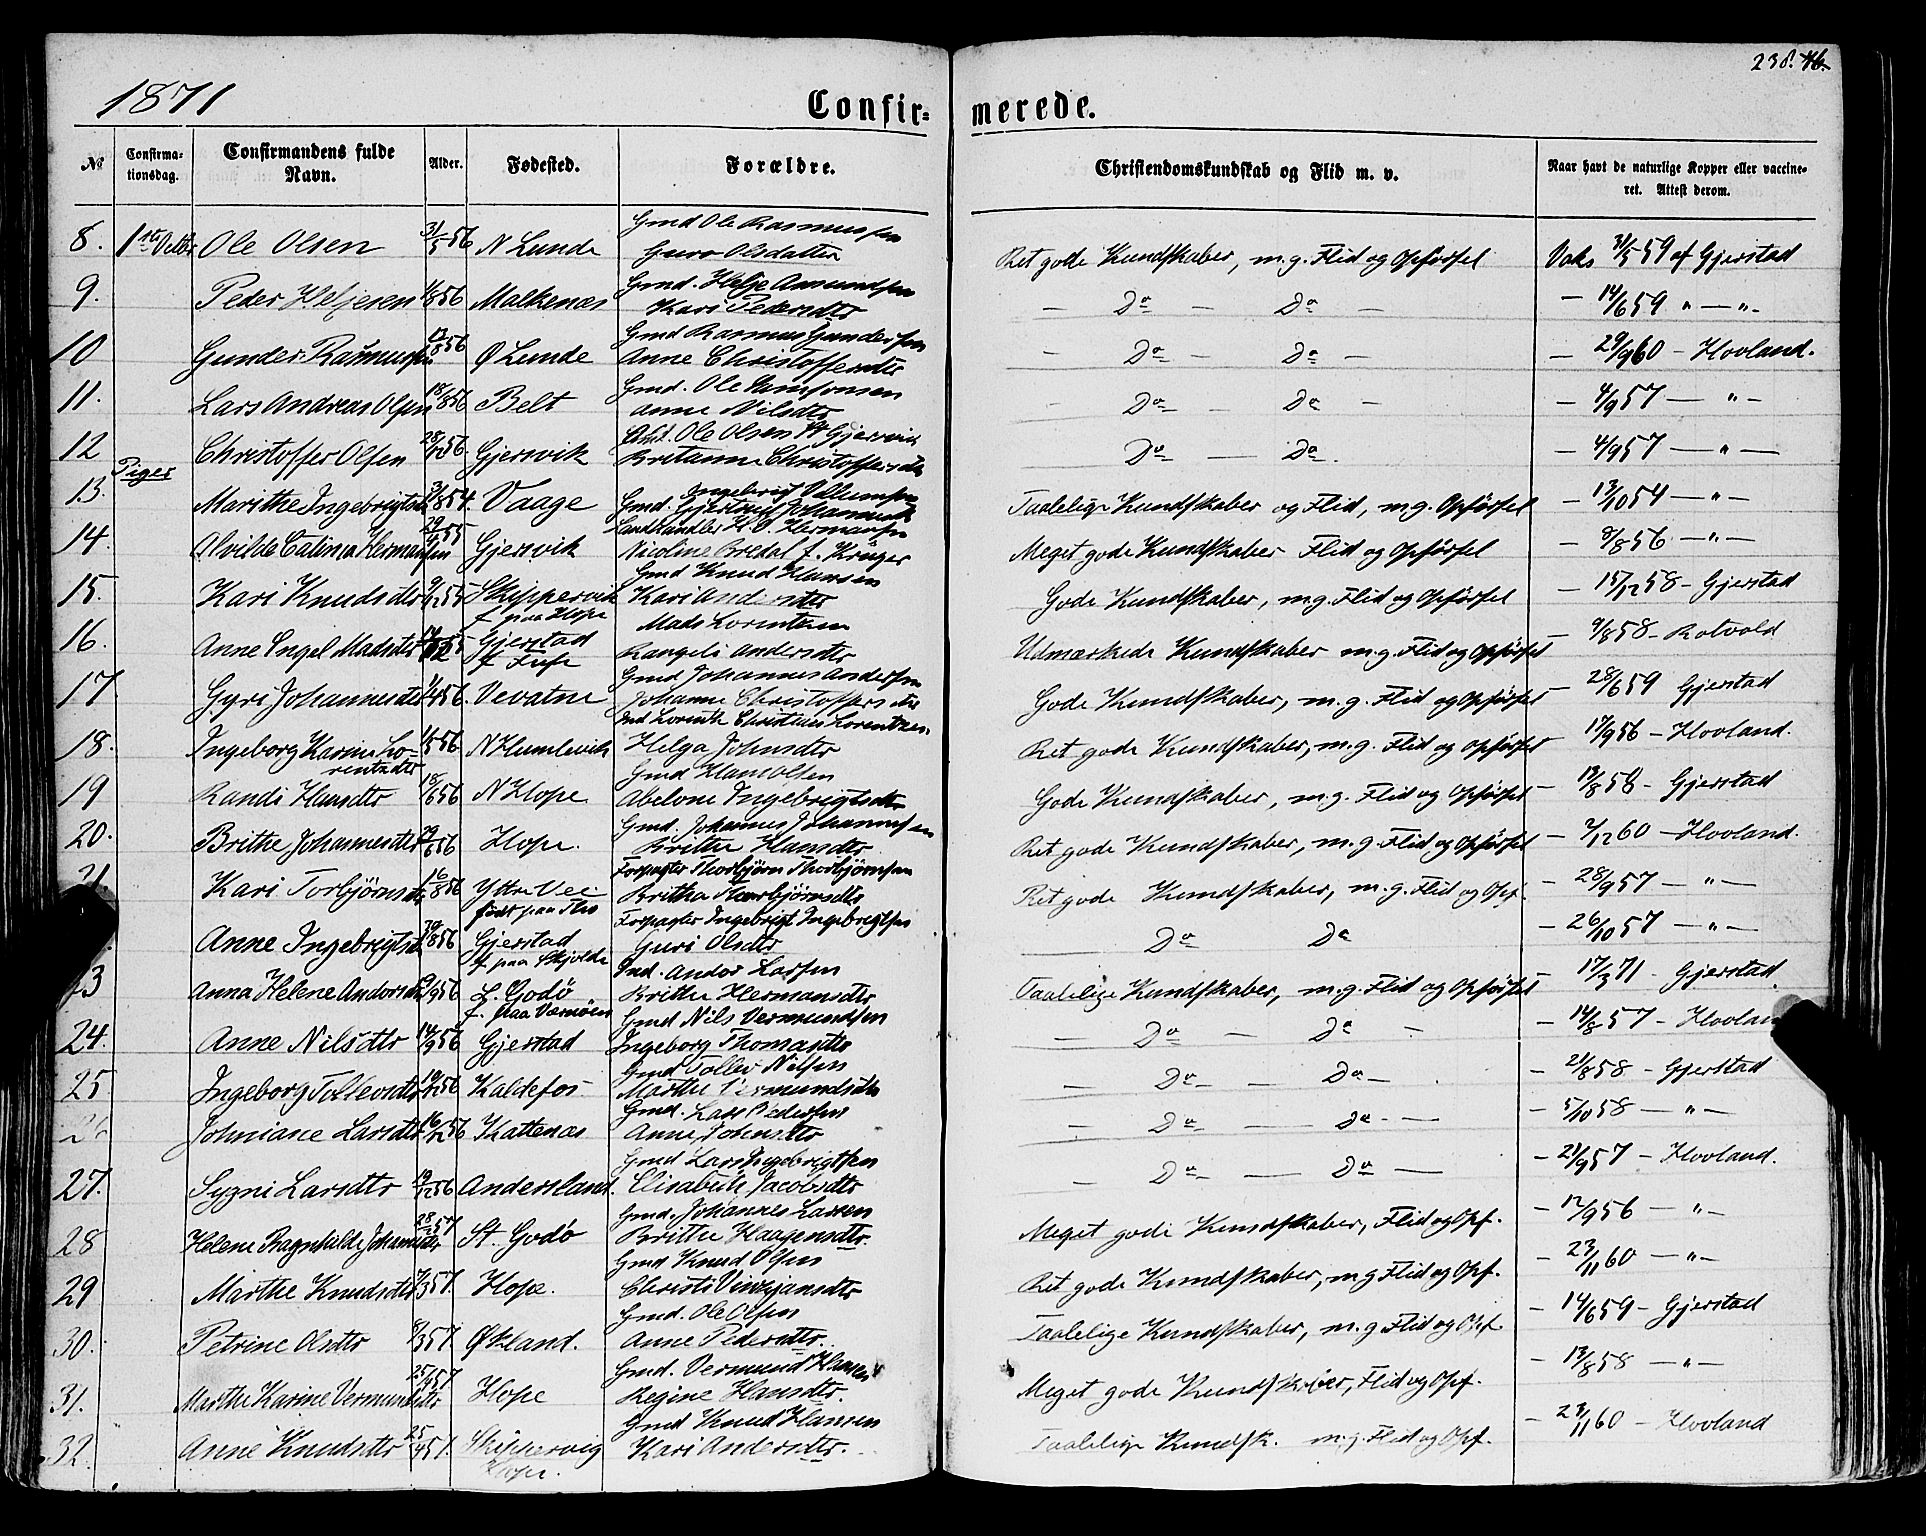 1871
Confir=
merede.
238. 46.
№
Confirma-
tionsdag.
Confirmandens fulde
Navn.
Alder.
Fødested.
Forældre.
Christendomskundskab og Flid m. v.
Naar havt de naturlige Kopper eller vaccine-
ret. Attest derom.
Gmd Ole Rasmussen
8. 1ste Octbr Ole Olsen 31/5 56 N Lunde Guro Olsdatter Ret gode Kundskaber, m.g. Flid og Opførsel Vaks 31/5 59 af Gjerstad
Gmd. Helje Aamundsen
9. Peder Heljesen 56 Malkenæs Kari Pedersdtr — Do — Do — — 14/6 59 " — " —
Gmd Rasmus Gundersen
10 Gunder Rasmussen 56 Ø Lunde Anne Christoffersdtr — Do — Do — — 29/9 60 — Hovland.
Gmd. Ole Samsonsen
11. Lars Andreas Olsen 18/8 56 Belt Anne Nilsdtr — Do — Do — — 4/9 57 — " —
Gmd. Ole Olsen Gjersvik
12 Christoffer Olsen 56. Gjersvik Britanne Christoffersdtr Do — Do. — 4/9 57 — " —
Piger
13. Marithe Ingebrigtsdtr 3/8 54. Vaage Gmd. Taalelige Kundskaber og Flid, m.g. Opførsel — 13/10 54 — " —
Landhandler H. O. Hermansen
14. Alvilde Catinca Hermansen 55 Gjersvik Nicoline Bredal f. Krüger Meget gode Kundskaber Flid og Opførsel — 8/8 56 — " —
Gmd Knud Hansen
15. Kari Knudsdtr 9/12 55 Skippervik Kari Andersdtr Gode Kundskaber, m.g. Flid og Opførsel — 15/12 58 — Gjerstad
f. paa Hope Mads Lorentzen
16. Anne Engel Madsdtr 55 Gjerstad Rangeli Andersdtr Udmærkede Kundskaber m.g. Flid og Opførsel — 9/8 58 — Rotvold
Gmd Johannes Andersen
17 Gyri Johannesdtr 1/4 56. Vevatne Johanne Christoffersdtr Gode Kundskaber, m.g. Flid og Opførsel — 28/6 59 Gjerstad
Christian Lorentzen.
18. Ingeborg Karine Lo-
rentzdtr 56 N Humlevik Helga Johnsdtr Ret gode Kundskaber, m.g. Flid og Opførsel — 17/9 56 — Hovland.
Gmd Hans Olsen
19 Randi Hansdtr 18/6 56 N Hope Abelone Ingebrigtsdtr Gode Kundskaber, m.g. Flid og Opførsel — 13/8 58 — Gjerstad
Gmd. Johannes Johannesen
20. Brithe Johannesdtr 29/6 56 Hope. Brithe Hansdtr Ret gode Kundskaber, m.g. Flid og Opførsel — 7/12 60 — Hovland.
Forpagter Thorbjørn Thorbjørnsen
21 Kari Torbjørnsdtr 16/8 56 Ytre Vee Britha Thorbjørnsdtr Ret gode Kundskaber, m.g. Flid og Opf. — 28/9 57 — " —
født paa Forpagter Ingebrigt Ingebrigtsen
Anne Ingebrigtsdtr 30/8 56 Gjerstad Guri Olsdtr Do Do — 26/10 57 — " —
f. paa Skjolde Gmd. Andor Larsen
23 Anna Helene Andorsdtr 9/9 56 L. Godø Brithe Hermansdtr Taalelige Kundskaber, m.g. Flid og Opførsel — 17/3 71 — Gjerstad.
f. paa Værnøen Gmd Nils Vermundsen
24. Anne Nilsdtr 14/9 56 Gjerstad Ingeborg Thomasdtr — Do — Do — — 14/8 57 — Hovland
Gmd Tollev Nilsen
25 Ingeborg Tollevsdtr 56 Kaldefos Marthe Vermundsdtr — Do — Do — — 21/8 58 — Gjerstad
Gmd. Lars Pedersen
26 Johniane Larsdtr 16/12 56 Kattenæs Anne Johnsdtr — Do — Do — — 5/10 58 — " —
Gmd Lars Ingebrigtsen
27. Sygni Larsdtr 19/12 56 Andersland. Elisabeth Jacobsdtr — Do — Do — — 21/9 57 — Hovland.
Gmd. Johannes Larsen
28 Helene Ragnhilde Johannesdtr 57 St. Godø Brithe Haagensdtr. Meget gode Kundskaber, Flid og Opf. — 12/9 56 — " —
Gmd Knud Olsen
29 Marthe Knudsdtr 7/3 57. Hope. Christi Vinzjansdtr Ret gode Kundskaber, m.g Flid og Opf. — 23/11 60 — " —
Gmd. Ole Olsen
30. Petrine Olsdtr 8/3 57. Økland. Anne Pedersdtr. Taalelige Kundskaber, m.g Flid og Opf. — 14/6 59 — Gjerstad
Gmd. Vermund Hansen
31. Marthe Karine Vermundsdtr 57 Hope Regine Hansdtr. Meget gode Kundskaber, Flid og Opf. — 13/8 58 — " —
Gmd Knud Hansen
32. Anne Knudsdtr 25/4 57. Skippervig Kari Andersdtr. Taalelige Kundsk. m.g. Flid og Opf. — 23/11 60 — Hovland
Hope.